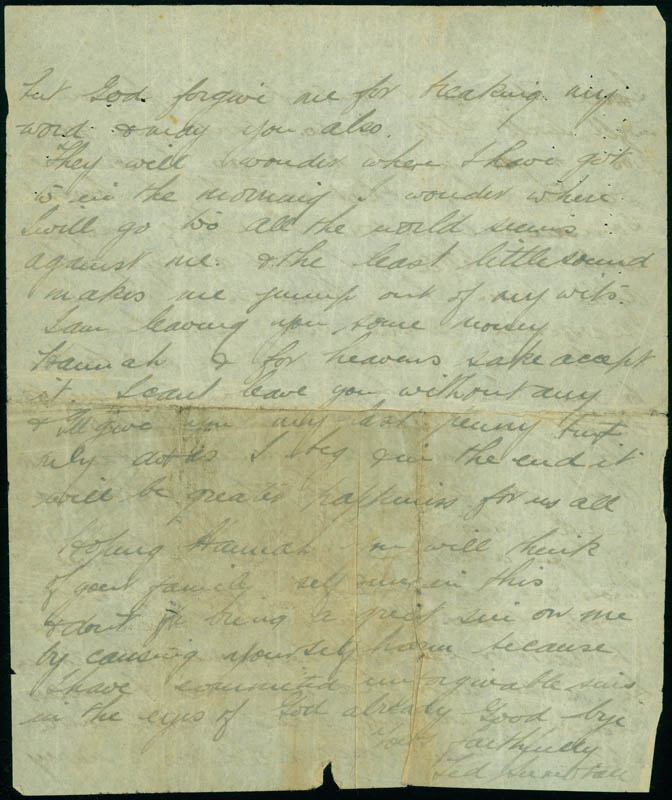 but God forgive me for breaking my
word & may you also.
They will wonder where I have got
to in the morning I wonder where
I will go too all the world seems
against me. & the least little sound
makes me jump out of my wits.
I am leaving you some money
Hannah & for heavens sake accept
it. I cant leave you without any
& Ill give you my last penny but
only do as I beg & in the end it
will be greater happiness for us all
Hoping Hannah you will think
of your family self & me in this
& dont bring a great sin on me
by causing yourself harm because
I have committed unforgivable sins
in the eyes of God already Good bye
Yours faithfully
Ted